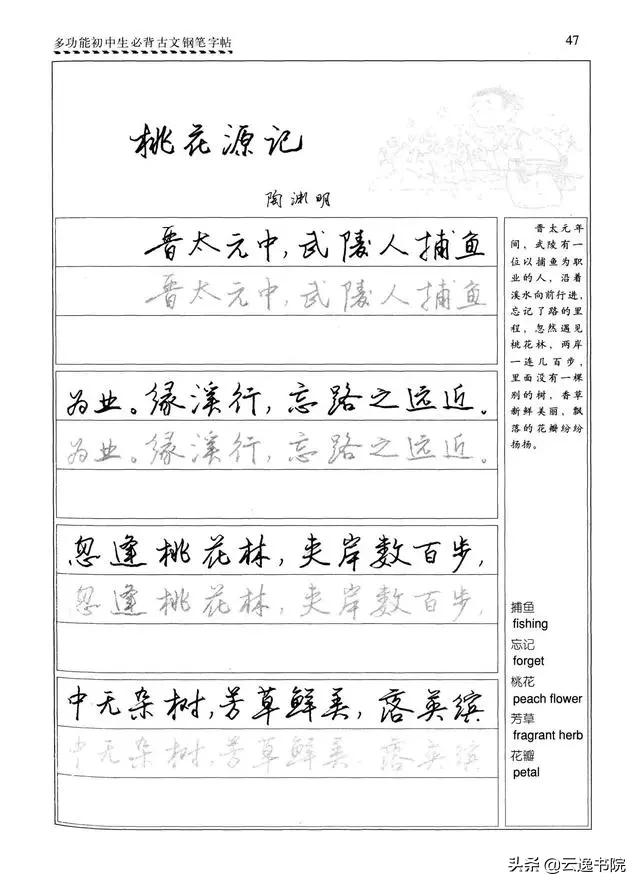 多功能初中生必背古文钢笔字帖
47
桃花源记
陶渊明
晋太元中,武陵人捕鱼
晋太元中,武陵人捕鱼
为业。缘溪行,忘路之远近。
为业。缘溪行,忘路之远近。
忽逢桃花林,夹岸数百步,
忽逢桃花林,夹岸数百步,
中无杂树,芳草鲜美,落英缤
中无杂树,芳草鲜美,落英缤
晋太元年
间,武陵有一
位以捕鱼为职
业的人,沿着
溪水向前行进,
忘记了路的里
程,忽然遇见
桃花林,两岸
一连几百步,
里面没有一棵
别的树,香草
新鲜美丽,飘
落的花瓣纷纷
扬扬。
捕鱼
fishing
忘记
forget
桃花
peach flower
芳草
fragrant herb
花瓣
petal
头条@云逸书院